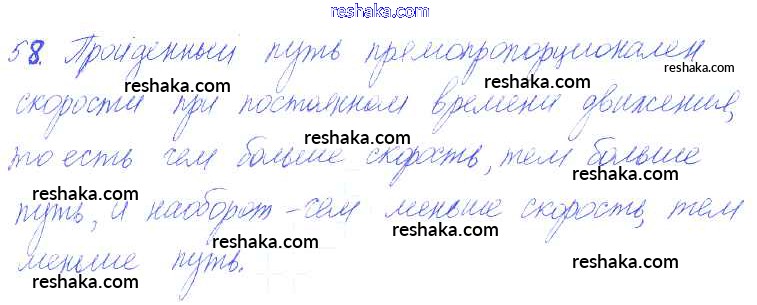 reshaka.com
58. Пройденный путь прямопропорционален
reshaka.com reshaka.com reshaka.com
скорости при постоянном времени движения,
reshaka.com reshaka.com
то есть чем больше скорость, тем больше
reshaka.com reshaka.com reshaka.com
путь, и наоборот - чем меньше скорость, тем
reshaka.com reshaka.com
меньше путь.
reshaka.com